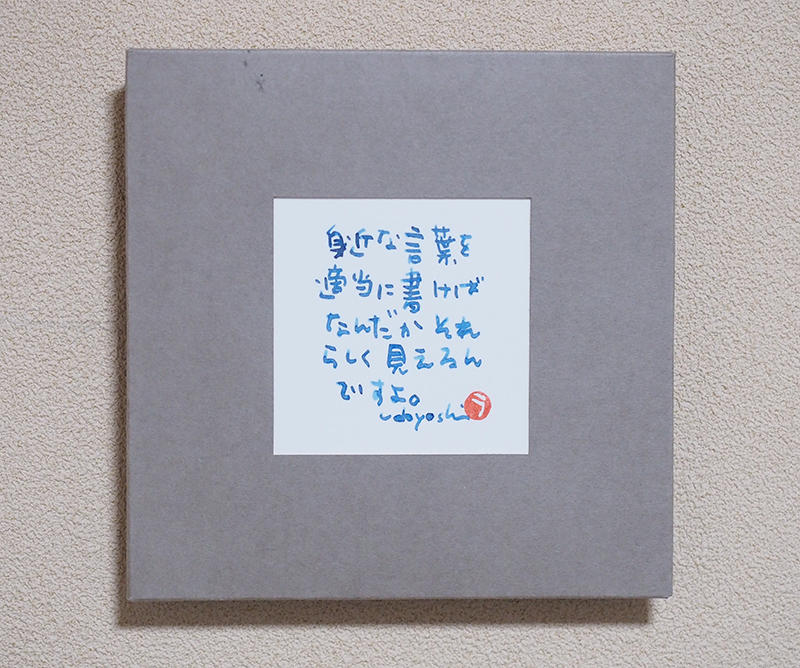 身近な言葉を
適当に書けば
なんだかそれ
らしく見えるん
ですよ。
doyoshi
う